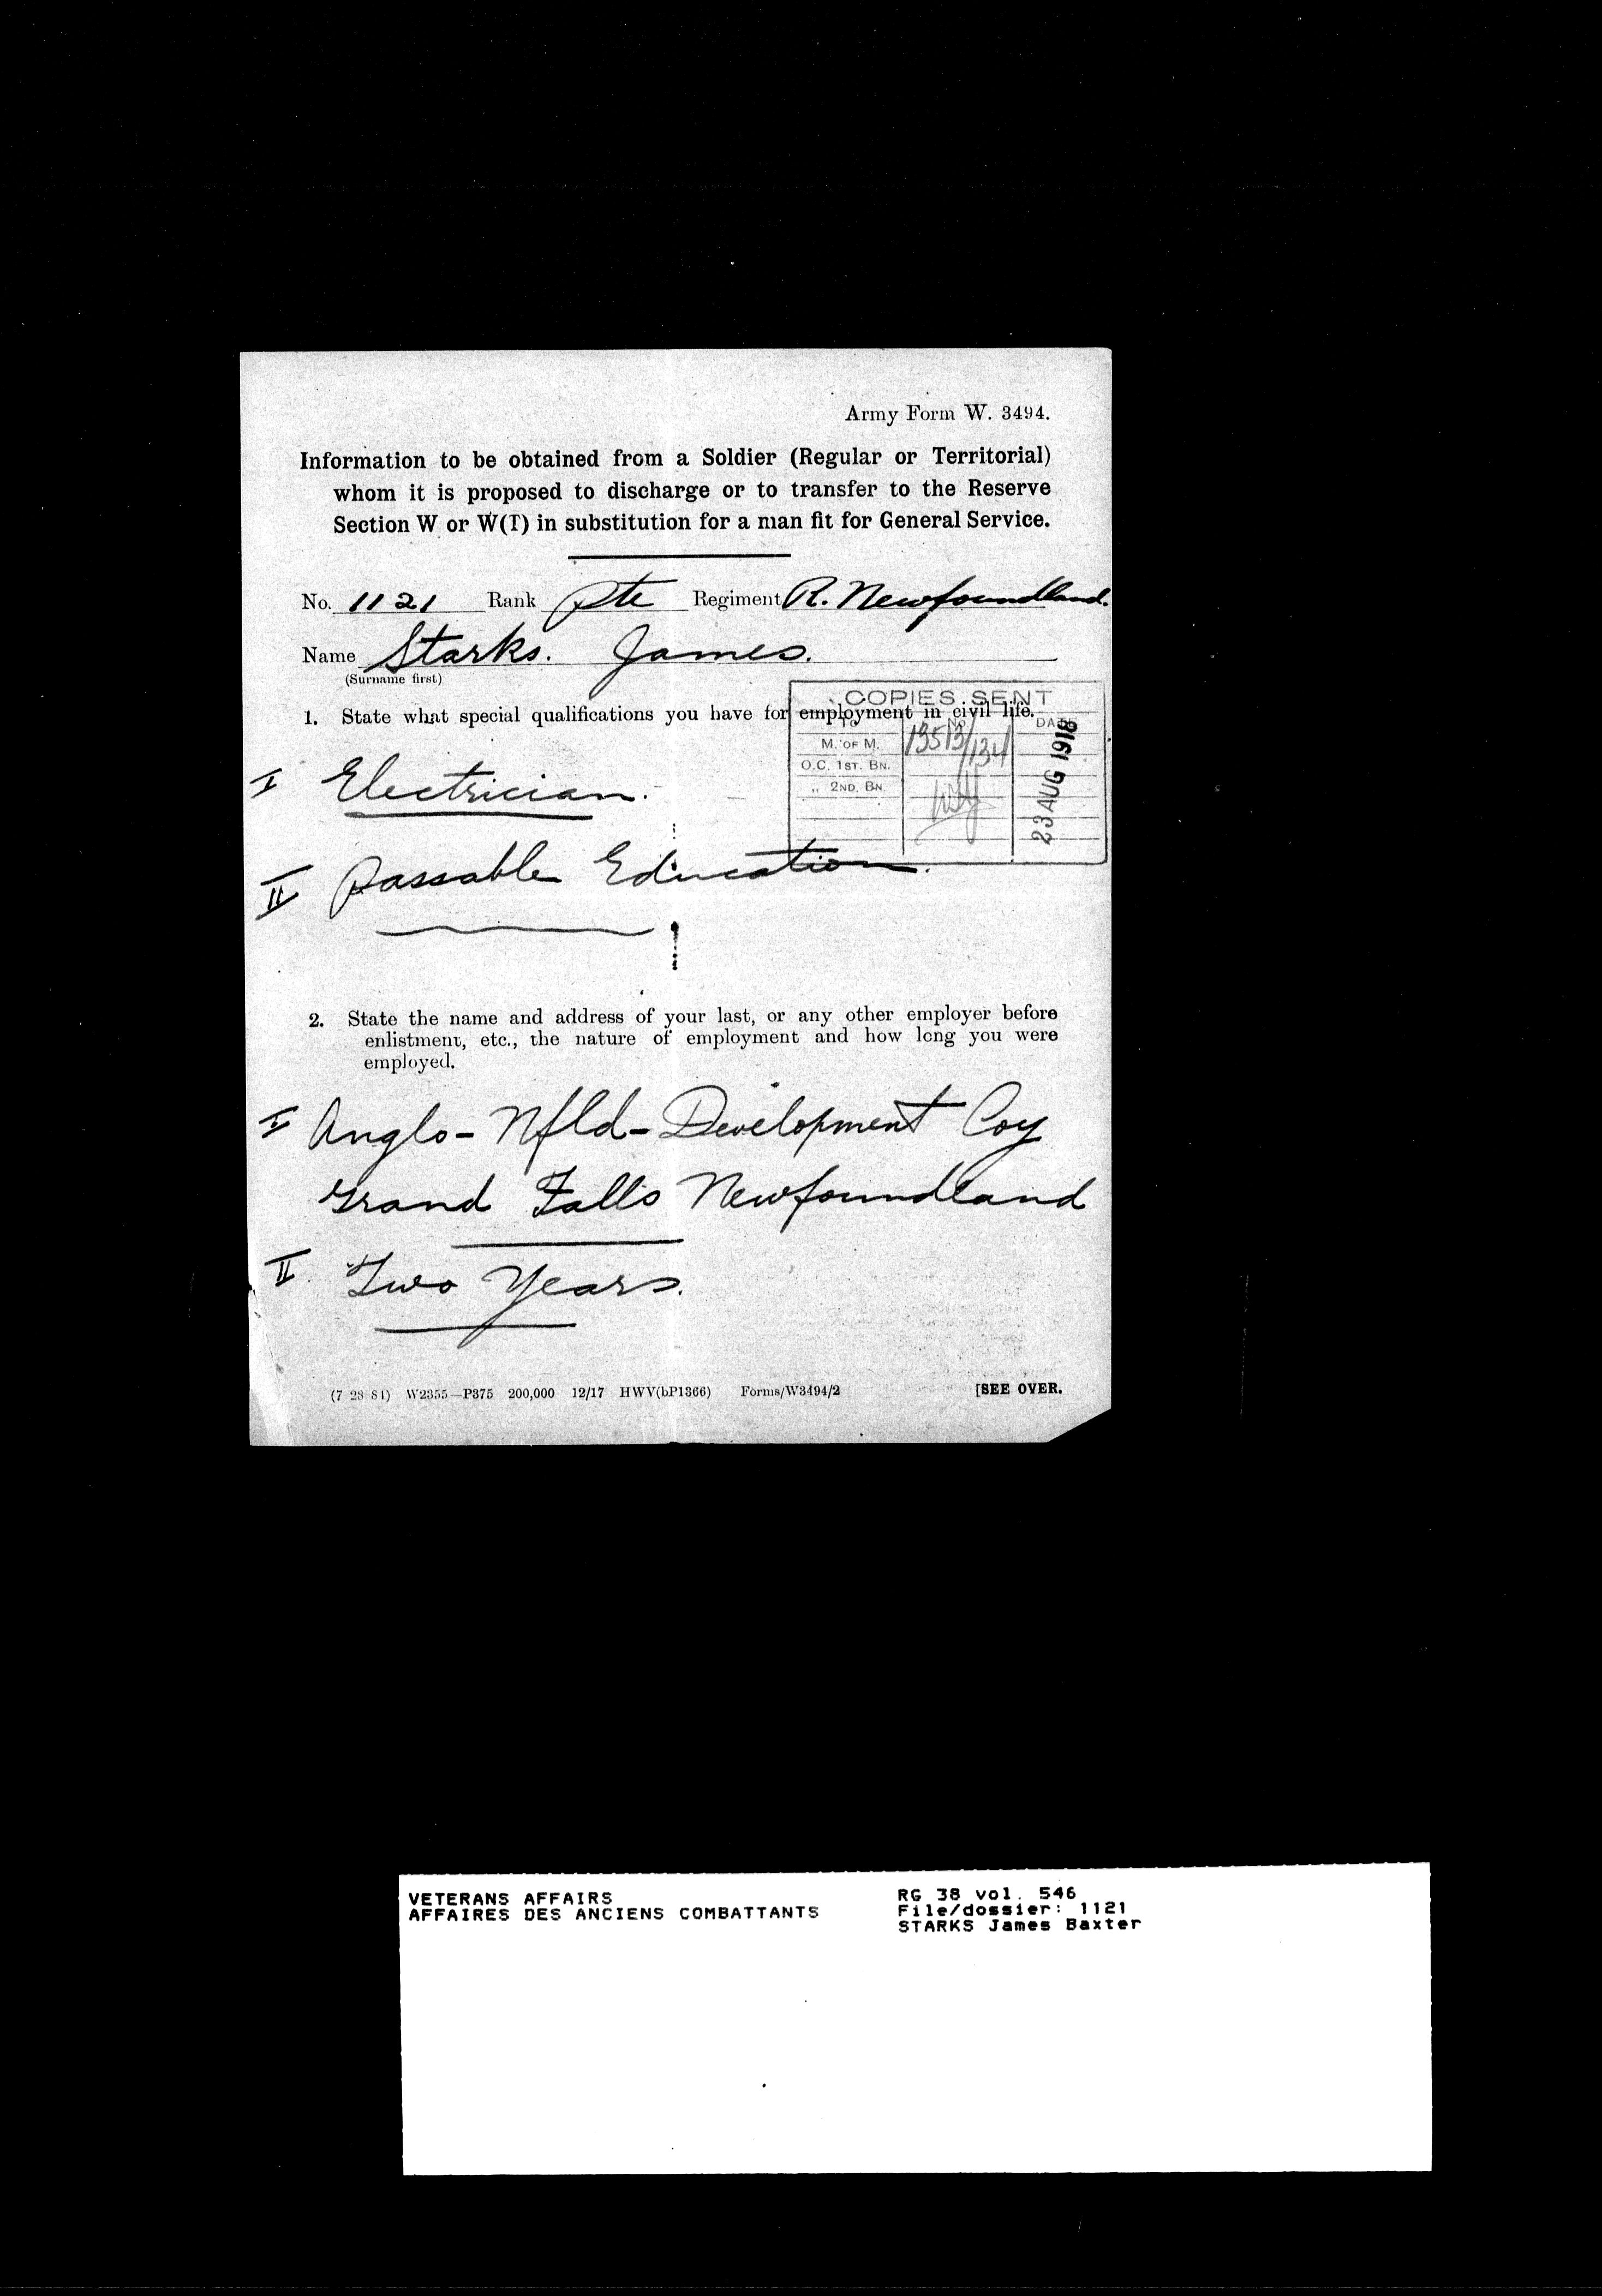 Army Form W. 3494.
Information to be obtained from a Soldier (Regular or Territorial)
whom it is proposed to discharge or to transfer to the Reserve
Section W or W(T) in substitution for a man fit for General Service.
No. 1121 Rank Pte Regiment R. Newfoundland.
Name Starks. James.
(Surname first)
COPIES SENT
1. State what special qualifications you have for employment in civil life.
TO NO. DATE
M. OF M. 13513/134
O.C. 1ST. BN.
„ 2ND. BN.
23 AUG 1918
I Electrician.
II Passable Education.
2. State the name and address of your last, or any other employer before
enlistment, etc., the nature of employment and how long you were
employed.
I Anglo-Nfld-Development Coy
Grand Falls Newfoundland
II Two Years.
(7 23 81) W2355—P375 200,000 12/17 HWV(bP1366) Forms/W3494/2 [SEE OVER.
VETERANS AFFAIRS
AFFAIRES DES ANCIENS COMBATTANTS
RG 38 vol. 546
File/dossier: 1121
STARKS James Baxter